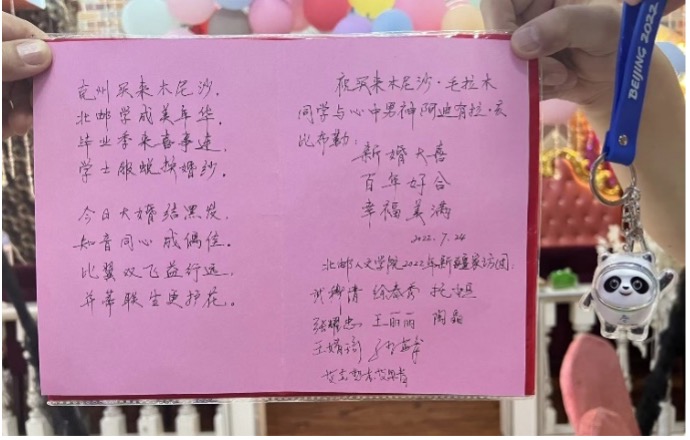 克州买来木尼沙，
北邮学成美年华。
毕业季来喜事连，
学士服蜕换婚纱。
今日大婚结黑发，
知音同心成偶佳。
比翼双飞益行远，
并蒂联生更护花。
祝买来木尼沙·毛拉木
同学与心中男神阿迪有拉·亥
比布勒：
新婚大喜
百年好合
幸福美满
2022.7.24
北邮人文学院2022年新疆家访团：
徐春秀
张耀忠 王丽丽 陶磊
BEIJING 2022